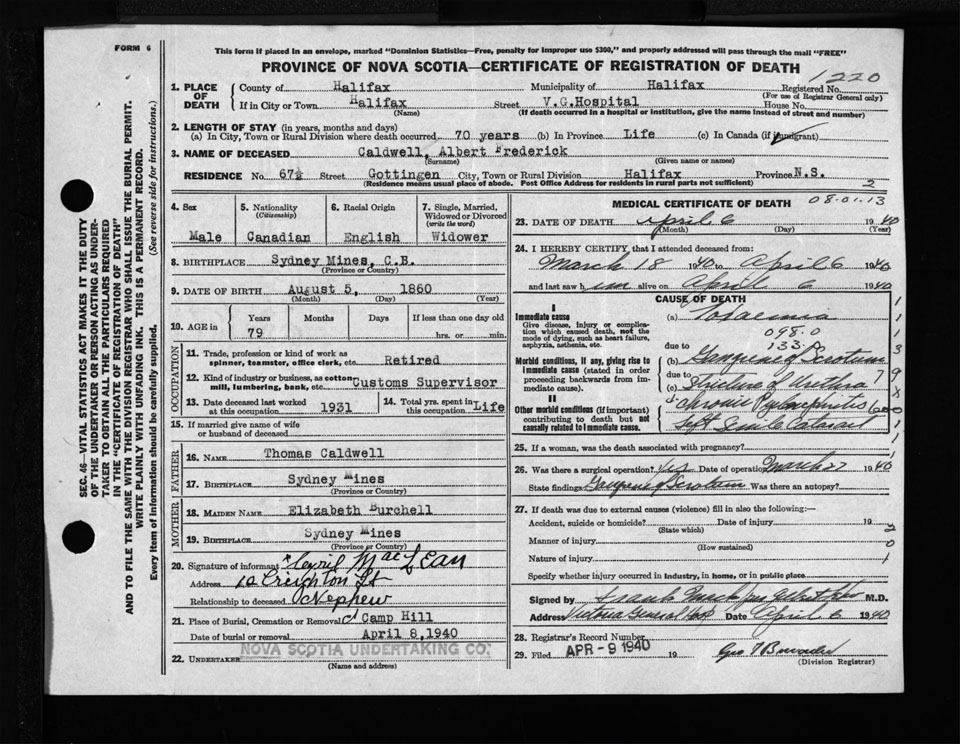 FORM 6
This form if placed in an envelope, marked "Dominion Statistics—Free, penalty for improper use $300," and properly addressed will pass through the mail "FREE"
PROVINCE OF NOVA SCOTIA—CERTIFICATE OF REGISTRATION OF DEATH
1220
1. PLACE OF DEATH
County of Halifax Municipality of Halifax Registered No.
(For use of Registrar General only)
If in City or Town Halifax Street V.G.Hospital House No.
(Name) (If death occurred in a hospital or institution, give the name instead of street and number)
2. LENGTH OF STAY (in years, months and days)
(a) In City, Town or Rural Division where death occurred 70 years (b) In Province Life (c) In Canada (if immigrant)
3. NAME OF DECEASED Caldwell, Albert Frederick
(Surname) (Given name or names)
RESIDENCE No. 67½ Street Gottingen City, Town or Rural Division Halifax Province N.S.
(Residence means usual place of abode. Post Office Address for residents in rural parts not sufficient)
2
4. Sex
Male
5. Nationality
(Citizenship)
Canadian
6. Racial Origin
English
7. Single, Married, Widowed or Divorced
(write the word)
Widower
8. BIRTHPLACE Sydney Mines, C.B.
(Province or Country)
9. DATE OF BIRTH August 5, 1860
(Month) (Day) (Year)
10. AGE in
Years Months Days If less than one day old
79 hrs. or min.
OCCUPATION
11. Trade, profession or kind of work as spinner, teamster, office clerk, etc. Retired
12. Kind of industry or business, as cotton mill, lumbering, bank, etc. Customs Supervisor
13. Date deceased last worked at this occupation 1931
14. Total yrs. spent in this occupation Life
15. If married give name of wife or husband of deceased
FATHER
16. NAME Thomas Caldwell
17. BIRTHPLACE Sydney Mines
(Province or Country)
MOTHER
18. MAIDEN NAME Elizabeth Burchell
19. BIRTHPLACE Sydney Mines
(Province or Country)
20. Signature of informant MacLean
Address 10 Creighton St
Relationship to deceased Nephew
21. Place of Burial, Cremation or Removal Camp Hill
Date of burial or removal April 8, 1940
22. UNDERTAKER NOVA SCOTIA UNDERTAKING CO.
(Name and address)
MEDICAL CERTIFICATE OF DEATH
08.01.13
23. DATE OF DEATH April 6 1940
(Month) (Day) (Year)
24. I HEREBY CERTIFY, that I attended deceased from:
March 18 1940 to April 6 1940
and last saw him alive on April 6 1940
CAUSE OF DEATH
I
Immediate cause
Give disease, injury or complication which caused death, not the mode of dying, such as heart failure, asphyxia, asthenia, etc.
(a) Toxaemia
098.0
133.0
due to
Morbid conditions, if any, giving rise to immediate cause (stated in order proceeding backwards from immediate cause).
(b) Gangrene of Scrotum
due to
(c) Stricture of Urethra
II
Other morbid conditions (if important) contributing to death but not causally related to immediate cause.
Chronic Pyelonephritis
left Senile Cataract
25. If a woman, was the death associated with pregnancy?
26. Was there a surgical operation? Yes Date of operation March 27 1940
State findings Gangrene of Scrotum Was there an autopsy?
27. If death was due to external causes (violence) fill in also the following:—
Accident, suicide or homicide? Date of injury 19
(State which)
Manner of injury
(How sustained)
Nature of injury
Specify whether injury occurred in industry, in home, or in public place
Signed by Frank M.D.
Address Victoria General Hosp Date April 6 1940
28. Registrar's Record Number
29. Filed APR - 9 1940 19
(Division Registrar)
SEC. 46—VITAL STATISTICS ACT MAKES IT THE DUTY
OF THE UNDERTAKER OR PERSON ACTING AS UNDER-
TAKER TO OBTAIN ALL THE PARTICULARS REQUIRED
IN THE "CERTIFICATE OF REGISTRATION OF DEATH"
AND TO FILE THE SAME WITH THE DIVISION REGISTRAR WHO SHALL ISSUE THE BURIAL PERMIT.
WRITE PLAINLY WITH UNFADING INK. THIS IS A PERMANENT RECORD.
Every item of information should be carefully supplied. (See reverse side for instructions.)